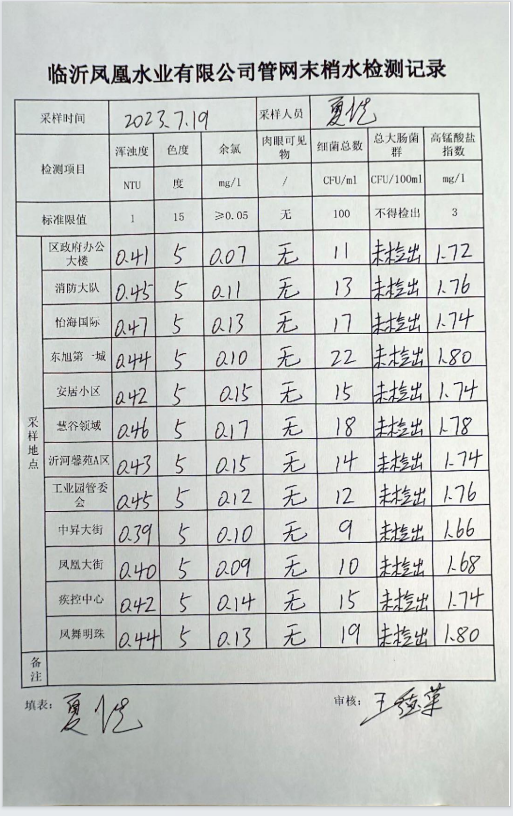 临沂凤凰水业有限公司管网末梢水检测记录
采样时间 2023.7.19 采样人员
检测项目 浑浊度 色度 余氯 肉眼可见物 细菌总数 总大肠菌群 高锰酸盐指数
NTU 度 mg/l / CFU/ml CFU/100ml mg/l
标准限值 1 15 ≥0.05 无 100 不得检出 3
采样地点
区政府办公大楼 0.41 5 0.07 无 11 未检出 1.72
消防大队 0.45 5 0.11 无 13 未检出 1.76
怡海国际 0.47 5 0.13 无 17 未检出 1.74
东旭第一城 0.44 5 0.10 无 22 未检出 1.80
安居小区 0.42 5 0.15 无 15 未检出 1.74
慧谷领域 0.46 5 0.17 无 18 未检出 1.78
沂河馨苑A区 0.43 5 0.15 无 14 未检出 1.74
工业园管委会 0.45 5 0.12 无 12 未检出 1.76
中昇大街 0.39 5 0.10 无 9 未检出 1.66
凤凰大街 0.40 5 0.09 无 10 未检出 1.68
疾控中心 0.42 5 0.14 无 15 未检出 1.74
凤舞明珠 0.44 5 0.13 无 19 未检出 1.80
备注
填表： 审核：